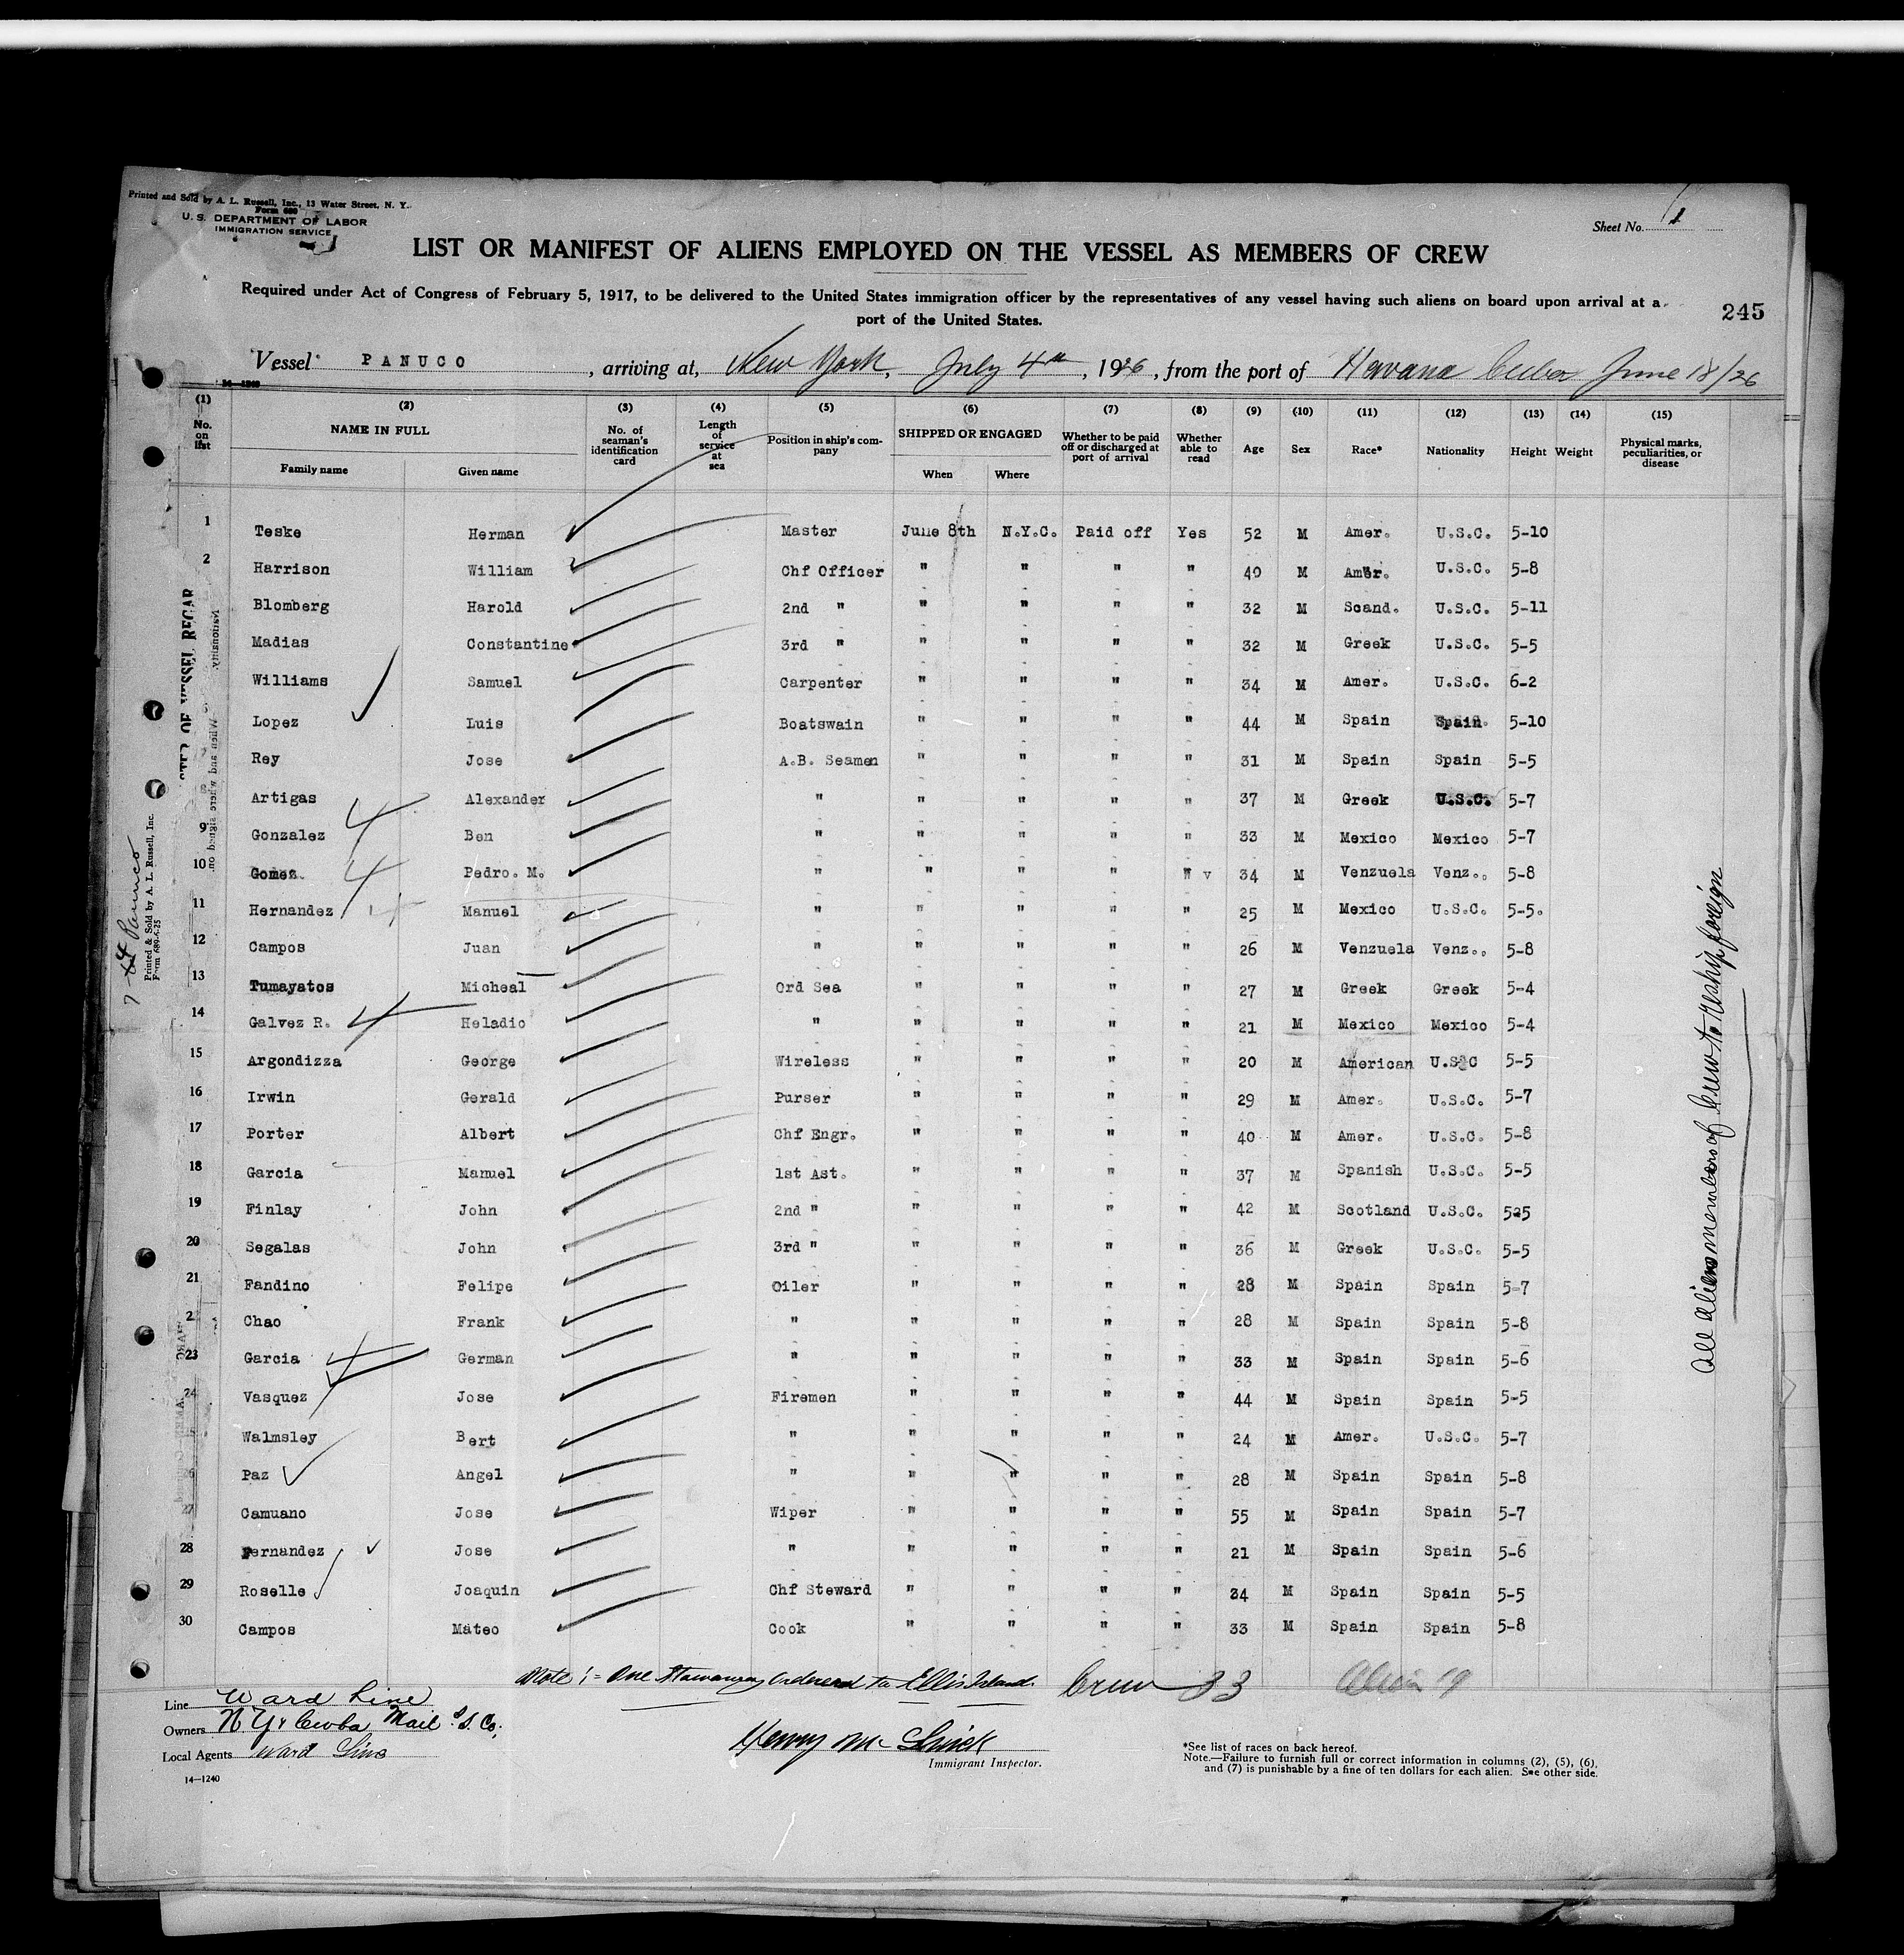 Printed and Sold by A. L. Russell, Inc., 13 Water Street, N. Y.
Form 680
U. S. DEPARTMENT OF LABOR
IMMIGRATION SERVICE
Sheet No. 1
LIST OR MANIFEST OF ALIENS EMPLOYED ON THE VESSEL AS MEMBERS OF CREW
Required under Act of Congress of February 5, 1917, to be delivered to the United States immigration officer by the representatives of any vessel having such aliens on board upon arrival at a
port of the United States.
245
Vessel PANUCO, arriving at, New York, July 4th, 1926, from the port of Havana Cuba June 18/26
14-1240
(1) (2) (3) (4) (5) (6) (7) (8) (9) (10) (11) (12) (13) (14) (15)
No. on list NAME IN FULL Family name Given name No. of seaman's identification card Length of service at sea Position in ship's company SHIPPED OR ENGAGED When Where Whether to be paid off or discharged at port of arrival Whether able to read Age Sex Race* Nationality Height Weight Physical marks, peculiarities, or disease
1 Teske Herman Master June 8th N.Y.C. Paid off Yes 52 M Amer. U.S.C. 5-10
2 Harrison William Chf Officer " " " " 40 M Amer. U.S.C. 5-8
Blomberg Harold 2nd " " " " " 32 M Scand. U.S.C. 5-11
Madias Constantine 3rd " " " " " 32 M Greek U.S.C. 5-5
Williams Samuel Carpenter " " " " 34 M Amer. U.S.C. 6-2
Lopez Luis Boatswain " " " " 44 M Spain Spain 5-10
Rey Jose A.B. Seamen " " " " 31 M Spain Spain 5-5
8 Artigas Alexander " " " " " 37 M Greek U.S.C. 5-7
9 Gonzalez Ben " " " " " 33 M Mexico Mexico 5-7
10 Gomez Pedro. M. " " " " " v 34 M Venzuela Venz.. 5-8
11 Hernandez Manuel " " " " " 25 M Mexico U.S.C. 5-5.
12 Campos Juan " " " " " 26 M Venzuela Venz.. 5-8
13 Tumayatos Micheal Ord Sea " " " " 27 M Greek Greek 5-4
14 Galvez R. Heladio " " " " " 21 M Mexico Mexico 5-4
15 Argondizza George Wireless " " " " 20 M American U.S.C 5-5
16 Irwin Gerald Purser " " " " 29 M Amer. U.S.C. 5-7
17 Porter Albert Chf Engr. " " " " 40 M Amer. U.S.C. 5-8
18 Garcia Manuel 1st Ast. " " " " 37 M Spanish U.S.C. 5-5
19 Finlay John 2nd " " " " " 42 M Scotland U.S.C. 5-5
20 Segalas John 3rd " " " " " 36 M Greek U.S.C. 5-5
21 Fandino Felipe Oiler " " " " 28 M Spain Spain 5-7
2 Chao Frank " " " " " 28 M Spain Spain 5-8
23 Garcia German " " " " " 33 M Spain Spain 5-6
24 Vasquez Jose Firemen " " " " 44 M Spain Spain 5-5
Walmsley Bert " " " " " 24 M Amer. U.S.C. 5-7
26 Paz Angel " " " " " 28 M Spain Spain 5-8
27 Camuano Jose Wiper " " " " 55 M Spain Spain 5-7
28 Fernandez Jose " " " " " 21 M Spain Spain 5-6
29 Roselle Joaquin Chf Steward " " " " 34 M Spain Spain 5-5
30 Campos Mateo Cook " " " " 33 M Spain Spain 5-8
All aliens members of Crew to Reship foreign
Panuco
Printed & Sold by A. L. Russell, Inc.
Form 689-6-25
When and where signed on
Nationality
Note:- One Stowaway Ordered to Ellis Island. Crew 33 Alien 19
Line Ward Line
Owners N.Y & Cuba Mail S.S. Co.
Local Agents Ward Line
14-1240
Immigrant Inspector.
*See list of races on back hereof.
Note.—Failure to furnish full or correct information in columns (2), (5), (6),
and (7) is punishable by a fine of ten dollars for each alien. See other side.